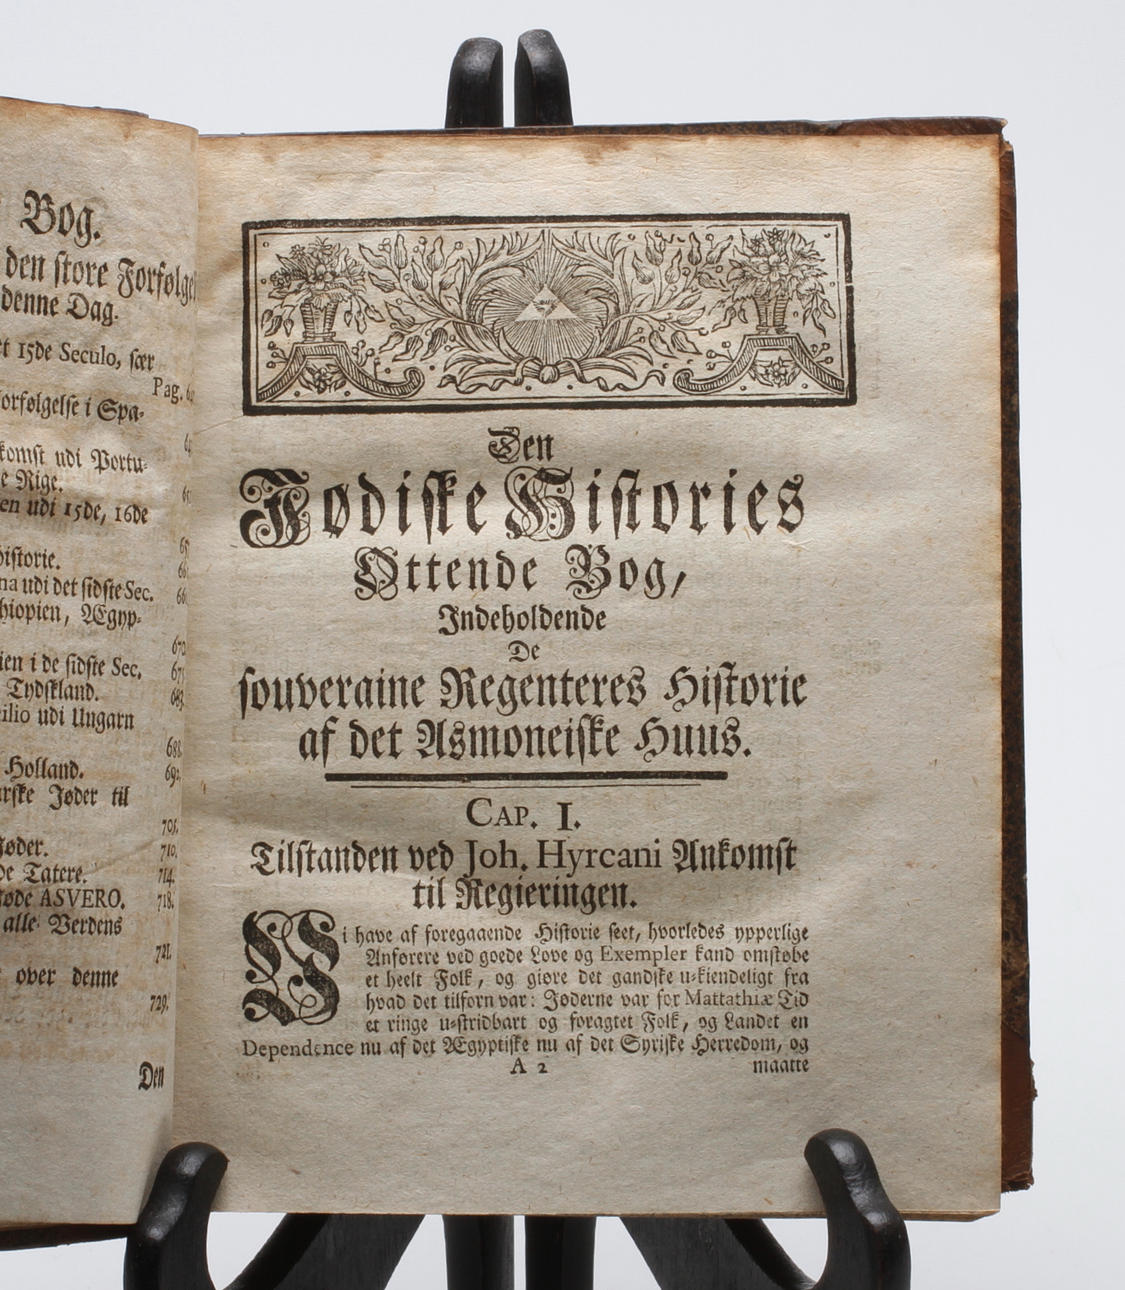 Bog.
den store Forfølgel
denne Dag.
et 15de Seculo, sær
Pag.
forfølgelse i Spa-
komst udi Portu-
e Rige.
en udi 15de, 16de
Historie.
na udi det sidste Sec.
thiopien, Ægyp-
670
ien i de sidste Sec.
Tydskland.
cilio udi Ungarn
688.
Holland.
692.
rske Jøder til
705.
Jøder.
710.
de Tatere.
714.
Jøde ASVERO.
718.
alle Verdens
721.
over denne
729.
Den
Den
Jødiske Histories
Ottende Bog,
Indeholdende
De
souveraine Regenteres Historie
af det Asmoneiske Huus.
CAP. I.
Tilstanden ved Joh. Hyrcani Ankomst
til Regieringen.
Wi have af foregaaende Historie seet, hvorledes ypperlige
Anførere ved goede Love og Exempler kand omstøbe
et heelt Folk, og giøre det gandske u-kiendeligt fra
hvad det tilforn var: Jøderne var for Mattathiæ Tid
et ringe u-stridbart og foragtet Folk, og Landet en
Dependence nu af det Ægyptiske nu af det Syriske Herredom, og
A 2
maatte